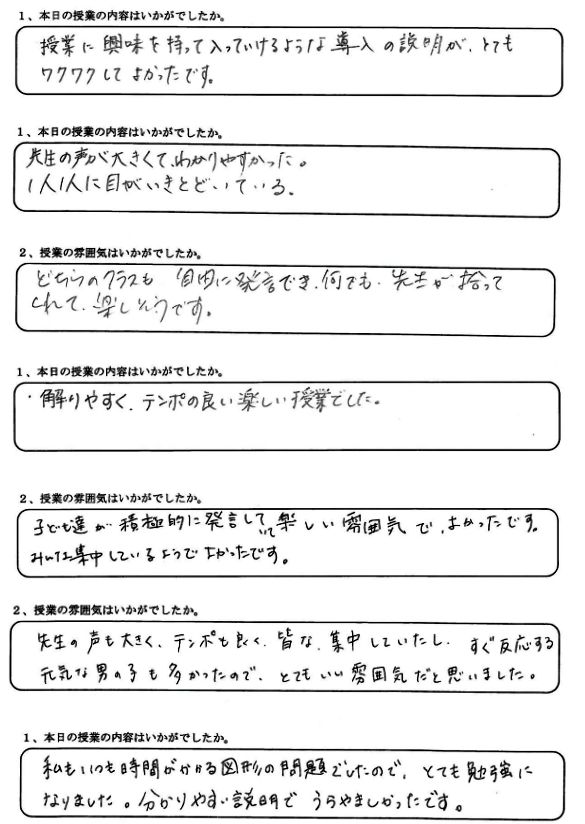 1、本日の授業の内容はいかがでしたか。
授業に興味を持って入っていけるような導入の説明が、とても
ワクワクしてよかったです。
1、本日の授業の内容はいかがでしたか。
先生の声が大きくて、わかりやすかった。
1人1人に目がいきとどいている。
2、授業の雰囲気はいかがでしたか。
どちらのクラスも 自由に発言でき、何でも、先生が拾って
くれて、楽しそうです。
1、本日の授業の内容はいかがでしたか。
・解りやすく、テンポの良い楽しい授業でした。
2、授業の雰囲気はいかがでしたか。
子ども達が積極的に発言していて楽しい雰囲気で、よかったです。
みんな集中しているようでよかったです。
2、授業の雰囲気はいかがでしたか。
先生の声も大きく、テンポも良く、皆な、集中していたし、すぐ反応する
元気な男の子も多かったので、とてもいい雰囲気だと思いました。
1、本日の授業の内容はいかがでしたか。
私もいつも時間がかかる図形の問題でしたので、とても勉強に
なりました。分かりやすい説明でうらやましかったです。